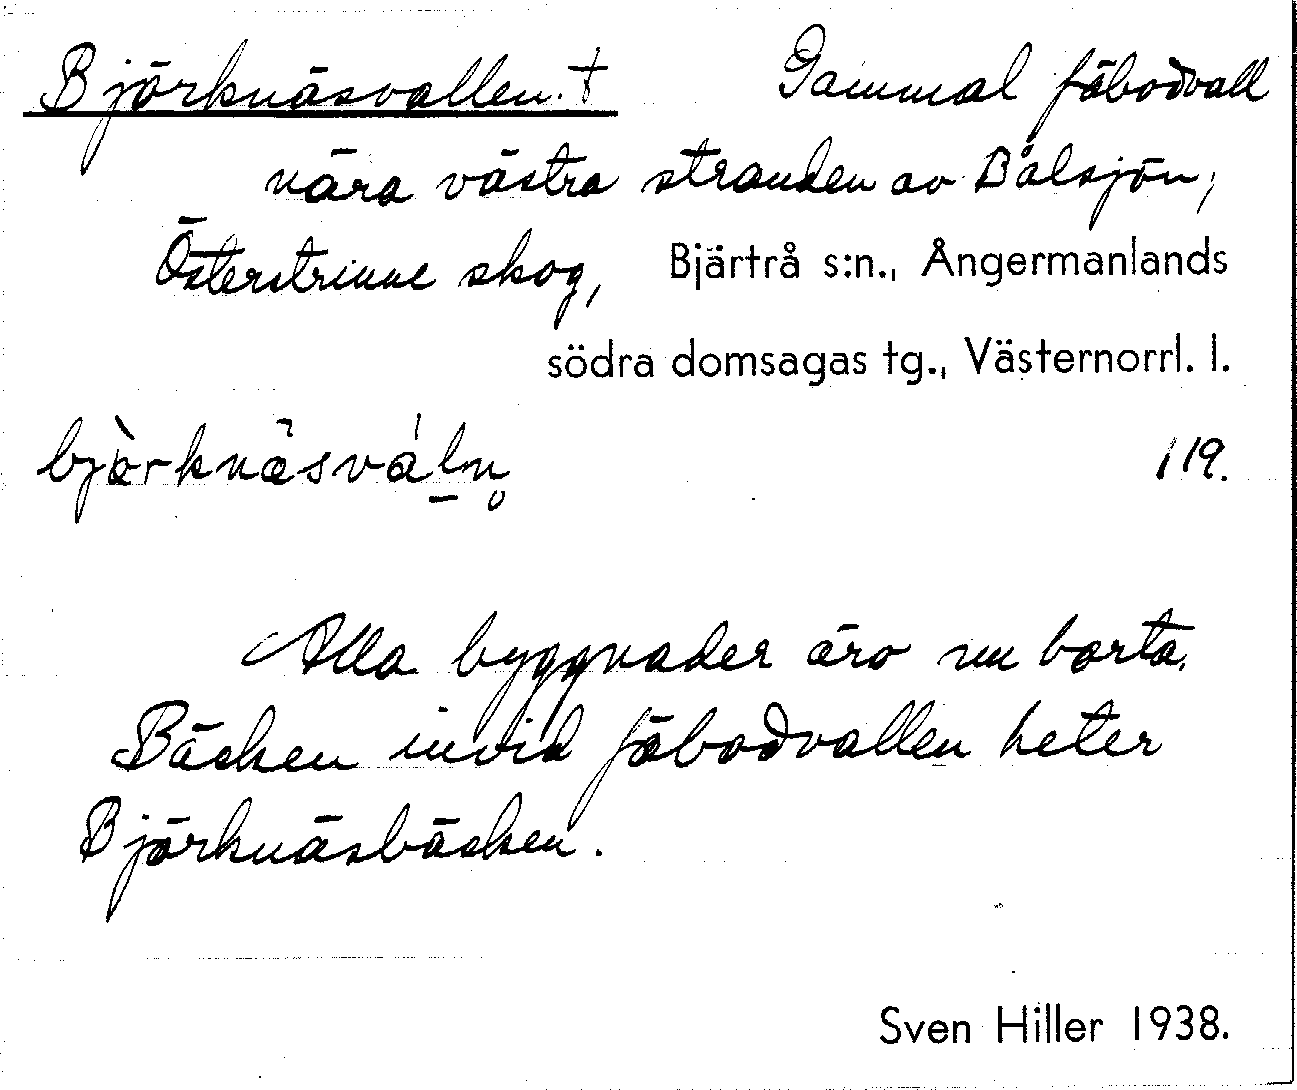 Björknäsvallen. † Gammal fäbodvall
nära västra stranden av Bålsjön,
Österstrinne skog, Bjärtrå s:n., Ångermanlands
södra domsagas tg., Västernorrl. l.
119.
Alla byggnader äro nu borta.
Bäcken invid fäbodvallen heter
Björknäsbäcken.
Sven Hiller 1938.